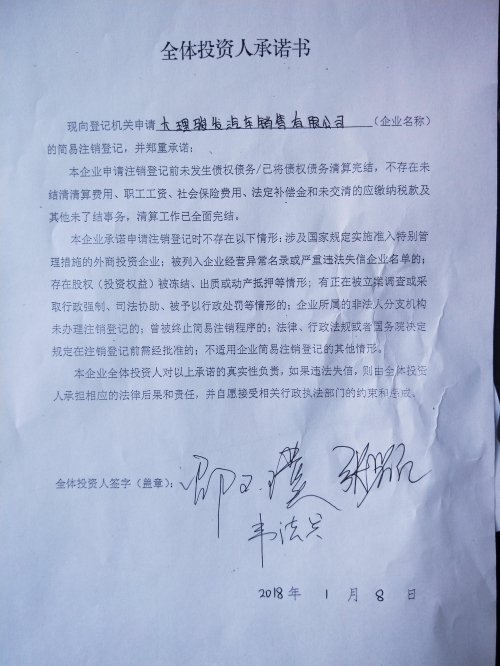 全体投资人承诺书
现向登记机关申请 大理骏发汽车销售有限公司 (企业名称)
的简易注销登记,并郑重承诺:
本企业申请注销登记前未发生债权债务/已将债权债务清算完结,不存在未
结清清算费用、职工工资、社会保险费用、法定补偿金和未交清的应缴纳税款及
其他未了结事务,清算工作已全面完结。
本企业承诺申请注销登记时不存在以下情形:涉及国家规定实施准入特别管
理措施的外商投资企业;被列入企业经营异常名录或严重违法失信企业名单的;
存在股权(投资权益)被冻结、出质或动产抵押等情形;有正在被立案调查或采
取行政强制、司法协助、被予以行政处罚等情形的;企业所属的非法人分支机构
未办理注销登记的;曾被终止简易注销程序的;法律、行政法规或者国务院决定
规定在注销登记前需经批准的;不适用企业简易注销登记的其他情形。
本企业全体投资人对以上承诺的真实性负责,如果违法失信,则由全体投资
人承担相应的法律后果和责任,并自愿接受相关行政执法部门的约束和惩戒。
全体投资人签字(盖章):
2018 年 1 月 8 日